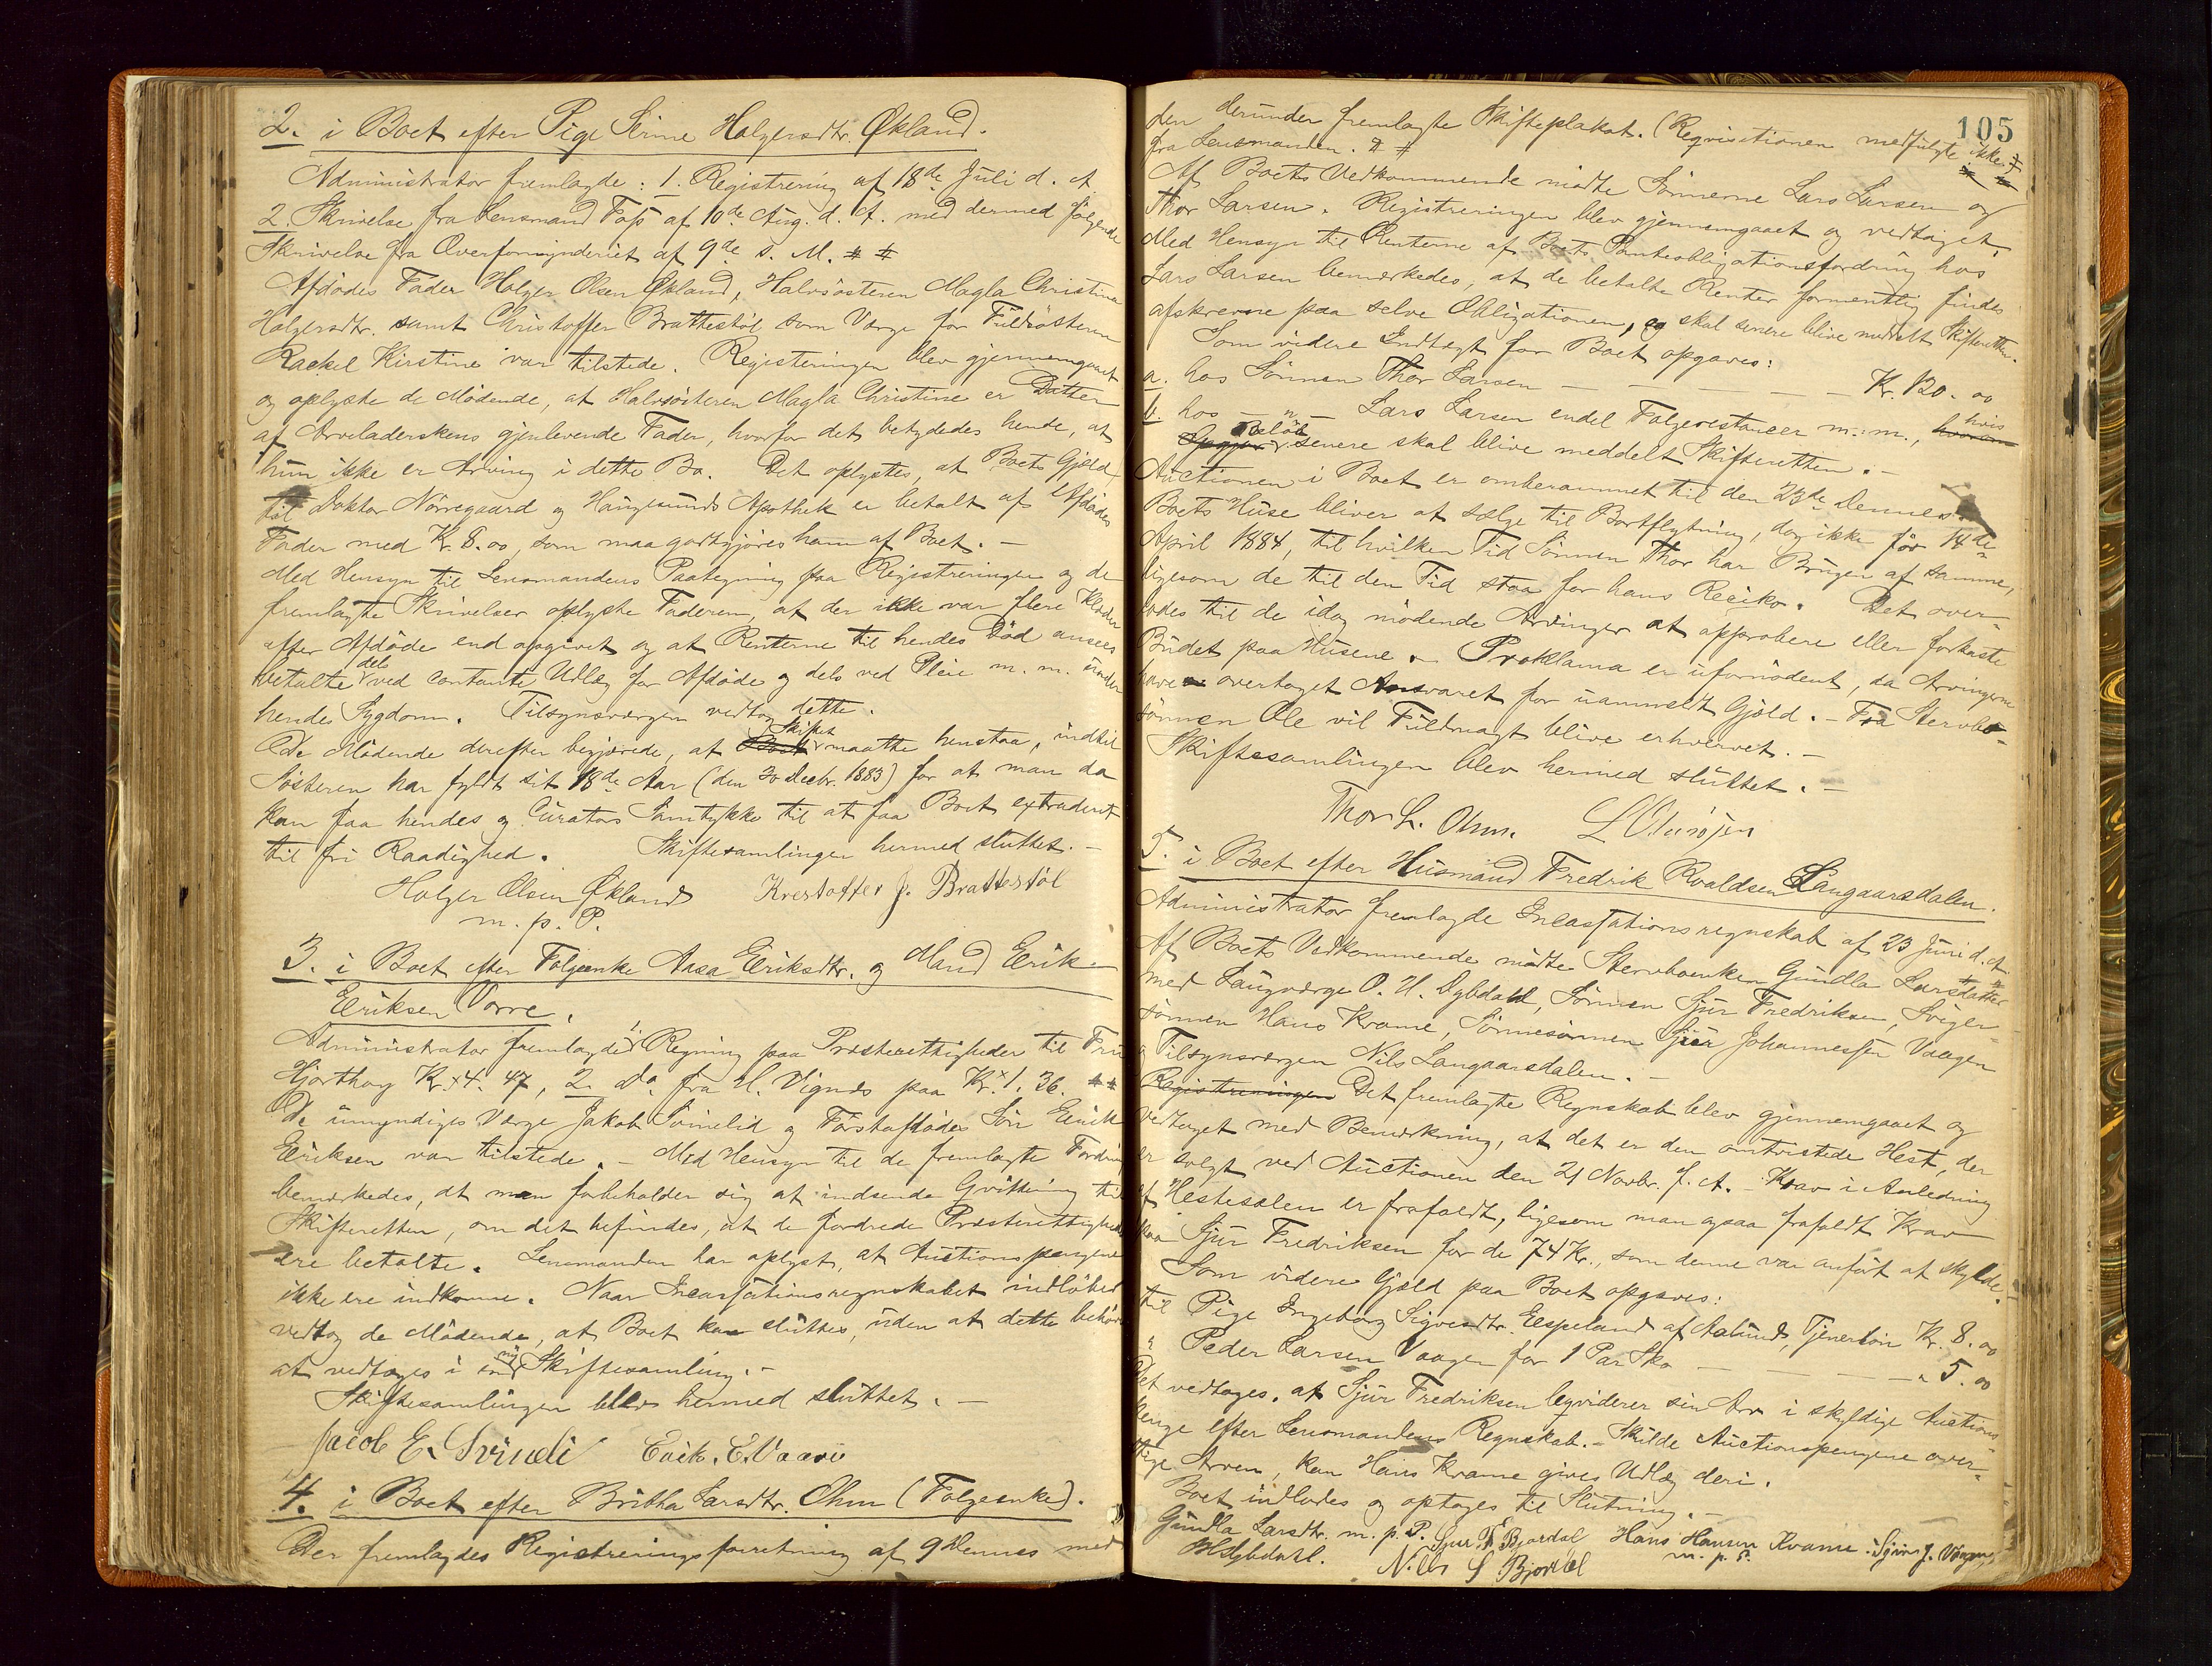 2. i Boet efter Pige Serine Holgersdtr. Økland.
Administrator fremlagde: 1. Registrering af 18de Juli d. A.
2. Skrivelse fra Lensmand Foss af 10de Aug. d. A. med dermed følgende
Skrivelse fra Overformynderiet af 9de s. M. # #
Afdødes Fader Holger Olsen Økland, Halvsøsteren Magla Christine
Holgersdtr. samt Christoffer Brattestøl som Værge for Fuldsøsteren
Rachel Kirstine var tilstede. Registeringen blev gjennemgaaet
og oplyste de Mødende, at Halvsøsteren Magla Christine er Datter
af Arveladerskens gjenlevende Fader, hvorfor det betydedes hende, at
hun ikke er Arving i dette Bo. Det oplystes, at Boets Gjæld
til Doktor Nørregaard og Haugesunds Apothek er betalt af Afdødes
Fader med Kr. 8.00, som maa godtgjøres ham af Boet. –
Med Hensyn til Lensmandens Paategning paa Registreringen og de
fremlagte Skrivelser oplyste Faderen, at der ikke var flere Klæder
efter Afdøde end opgivet og at Renterne til hendes Død ansees
betalte dels ved contante Udlæg for Afdøde og dels ved Pleie m. m. under
hendes Sygdom. Tilsynsværgen vedtog dette.
De Mødende derefter begjærede, at Skiftet maatte henstaa, indtil
Søsteren har fyldt sit 18de Aar (den 30 Decbr. 1883) for at man da
kan faa hendes og Curators Samtykke til at faa Boet extraderet
til fri Raadighed. Skiftesamlingen hermed sluttet. –
Holger Olsen Økland Krestoffer J. Brattestøl
m. p. P.
3. i Boet efter Folgeenke Aasa Eriksdtr. og Mand Erik
Eriksen Vorre.
Administrator fremlagde 1. Regning paa Præsterettigheder til Fru
Hjorthoy Kr. 4. 47, 2. do. fra H. Vignæs paa Kr. 1. 36. # #
De umyndiges Værge Jakob Svinelid og Førstafdødes Søn Erik
Eriksen var tilstede. – Med Hensyn til de fremlagte Fordringer
bemærkedes, at man forbeholder sig at indsende Qvittering til
Skifteretten, om det befindes, at de fordrede Præsterettigheder
ere betalte. Lensmanden har oplyst, at Auctionspengene
ikke ere indkomne. Naar Incassationsregnskabet indløber
vedtog de Mødende, at Boet kan sluttes, uden at dette behøver
at vedtages i ny Skiftesamling. –
Skiftesamlingen blev hermed sluttet. –
Jacob E. Svineli Erik. E. Vaare
4. i Boet efter Britha Larsdtr. Ohm (Folgeenke).
Der fremlagdes Registreringsforretning af 9 Dennes med
105
den derunder fremlagte Skifteplakat. (Reqvisitionen medfulgte ikke #
fra Lensmanden. # #
Af Boets Vedkommende mødte Sønnerne Lars Larsen og
Thor Larsen. Registreringen blev gjennemgaaet og vedtaget.
Med Hensyn til Renterne af Boets Panteobligationsfordring hos
Lars Larsen bemærkedes, at de betalte Renter formentlig findes
afskrevne paa selve Obligationen, og skal senere blive meddelt Skifteretten.
Som videre Indtægt for Boet opgaves:
a. hos Sønnen Thor Larsen – – – – Kr. 120. 00
b. hos – " – Lars Larsen endel Folgerestancer m. m., hvis
Beløb senere skal blive meddelt Skifteretten. –
Auctionen i Boet er omberammet til den 23de Dennes.
Boets Huse bliver at sælge til Bortflytning, dog ikke før 14de
April 1884, til hvilken Tid Sønnen Thor har Brugen af samme,
ligesom de til den Tid staa for hans Resiko. Det over-
lodes til de idag mødende Arvinger at approbere eller forkaste
Budet paa Husene. – Proklama er ufornødent, da Arvingerne
have overtaget Ansvaret for uanmeldt Gjæld. – Fra Stervbo-
sønnen Ole vil Fuldmagt blive erhvervet. –
Skiftesamlingen blev hermed sluttet. –
Thor L. Ohm.
5. i Boet efter Husmand Fredrik Roaldsen Langaarsdalen.
Administrator fremlagde Incassationsregnskab af 23 Juni d. A. # #
Af Boets Vedkommende mødte Stervboenken Gundla Larsdatter
med Laugværge O. H. Dybdahl, Sønnen Sjur Fredriksen, Sviger-
sønnen Hans Krame, Sønnesønnen Sjur Johannessen Vaagen
og Tilsynsværgen Nils Langaarsdalen. –
Registreringen Det fremlagte Regnskab blev gjennemgaaet og
vedtaget med Bemærkning, at det er den omtvistede Hest, der
er solgt ved Auctionen den 21 Novbr. f. A. – Krav i Anledning
af Hestesalen er frafaldt, ligesom man ogsaa frafaldt Krav
paa Sjur Fredriksen for de 74 Kr., som denne var anført at skylde.
Som videre Gjæld paa Boet opgaves:
til Pige Ingeborg Sigvesdtr. Espeland af Aalund, Tjenerløn Kr. 8. 00
" Peder Larsen Vaagen for 1 Par Sko – – – – " 5. 00
Det vedtoges, at Sjur Fredriksen leqviderer sin Arv i skyldige Auctions-
penge efter Lensmandens Regnskab. – Skulde Auctionspengene over-
stige Arven, kan Hans Krame gives Udlæg deri.
Boet indlodes og optoges til Slutning. –
Gundla Larsdtr. m. p. P. Sjur F. Bjordal Hans Hansen Kvame m. p. P. Sjur J. Vaagen
Nils S Bjordal